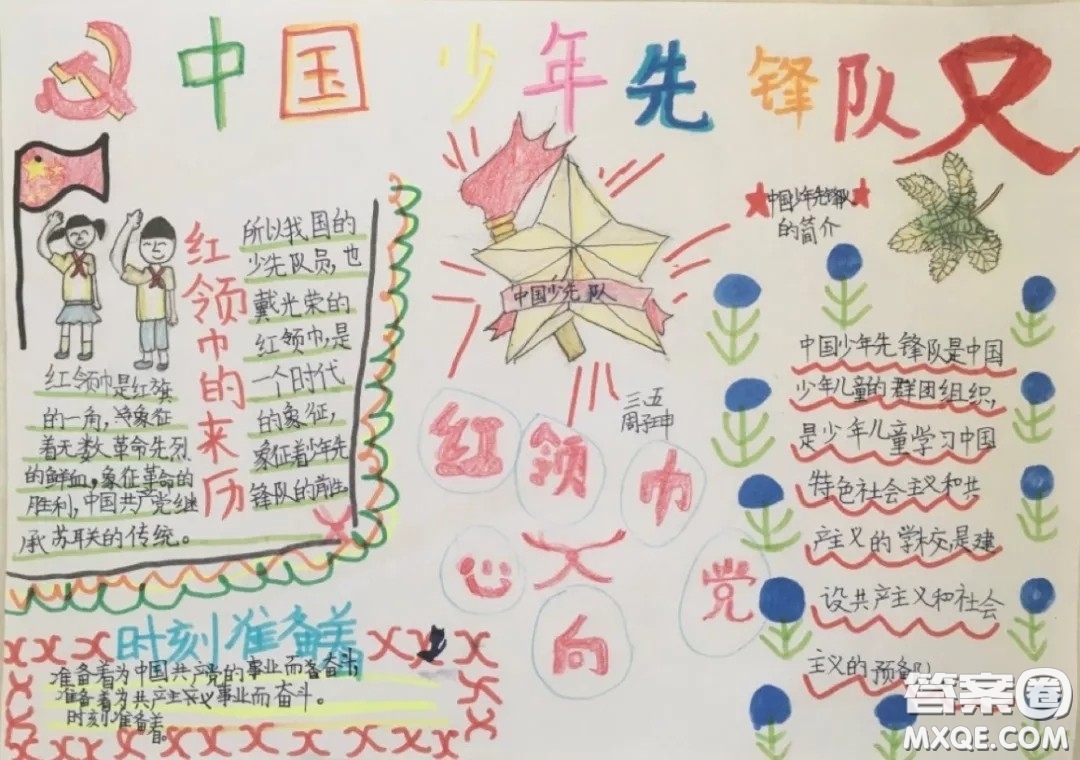 中国少年先锋队
红领巾的来历
红领巾是红旗
的一角，象征
着无数革命先烈
的鲜血，象征革命的
胜利，中国共产党继
承苏联的传统。
所以我国的
少先队员，也
戴光荣的
红领巾，是
一个时代
的象征，
象征着少年先
锋队的前生
中国少先队
三、五
红领巾
心向党
中国少年先锋队
的简介
中国少年先锋队是中国
少年儿童的群团组织，
是少年儿童学习中国
特色社会主义和共
产主义的学校，是建
设共产主义和社会
主义的预备队
时刻准备着
准备着为中国共产党的事业而奋斗
准备着为共产主义事业而奋斗。
时刻准备着。
答案圈
MXQE.COM